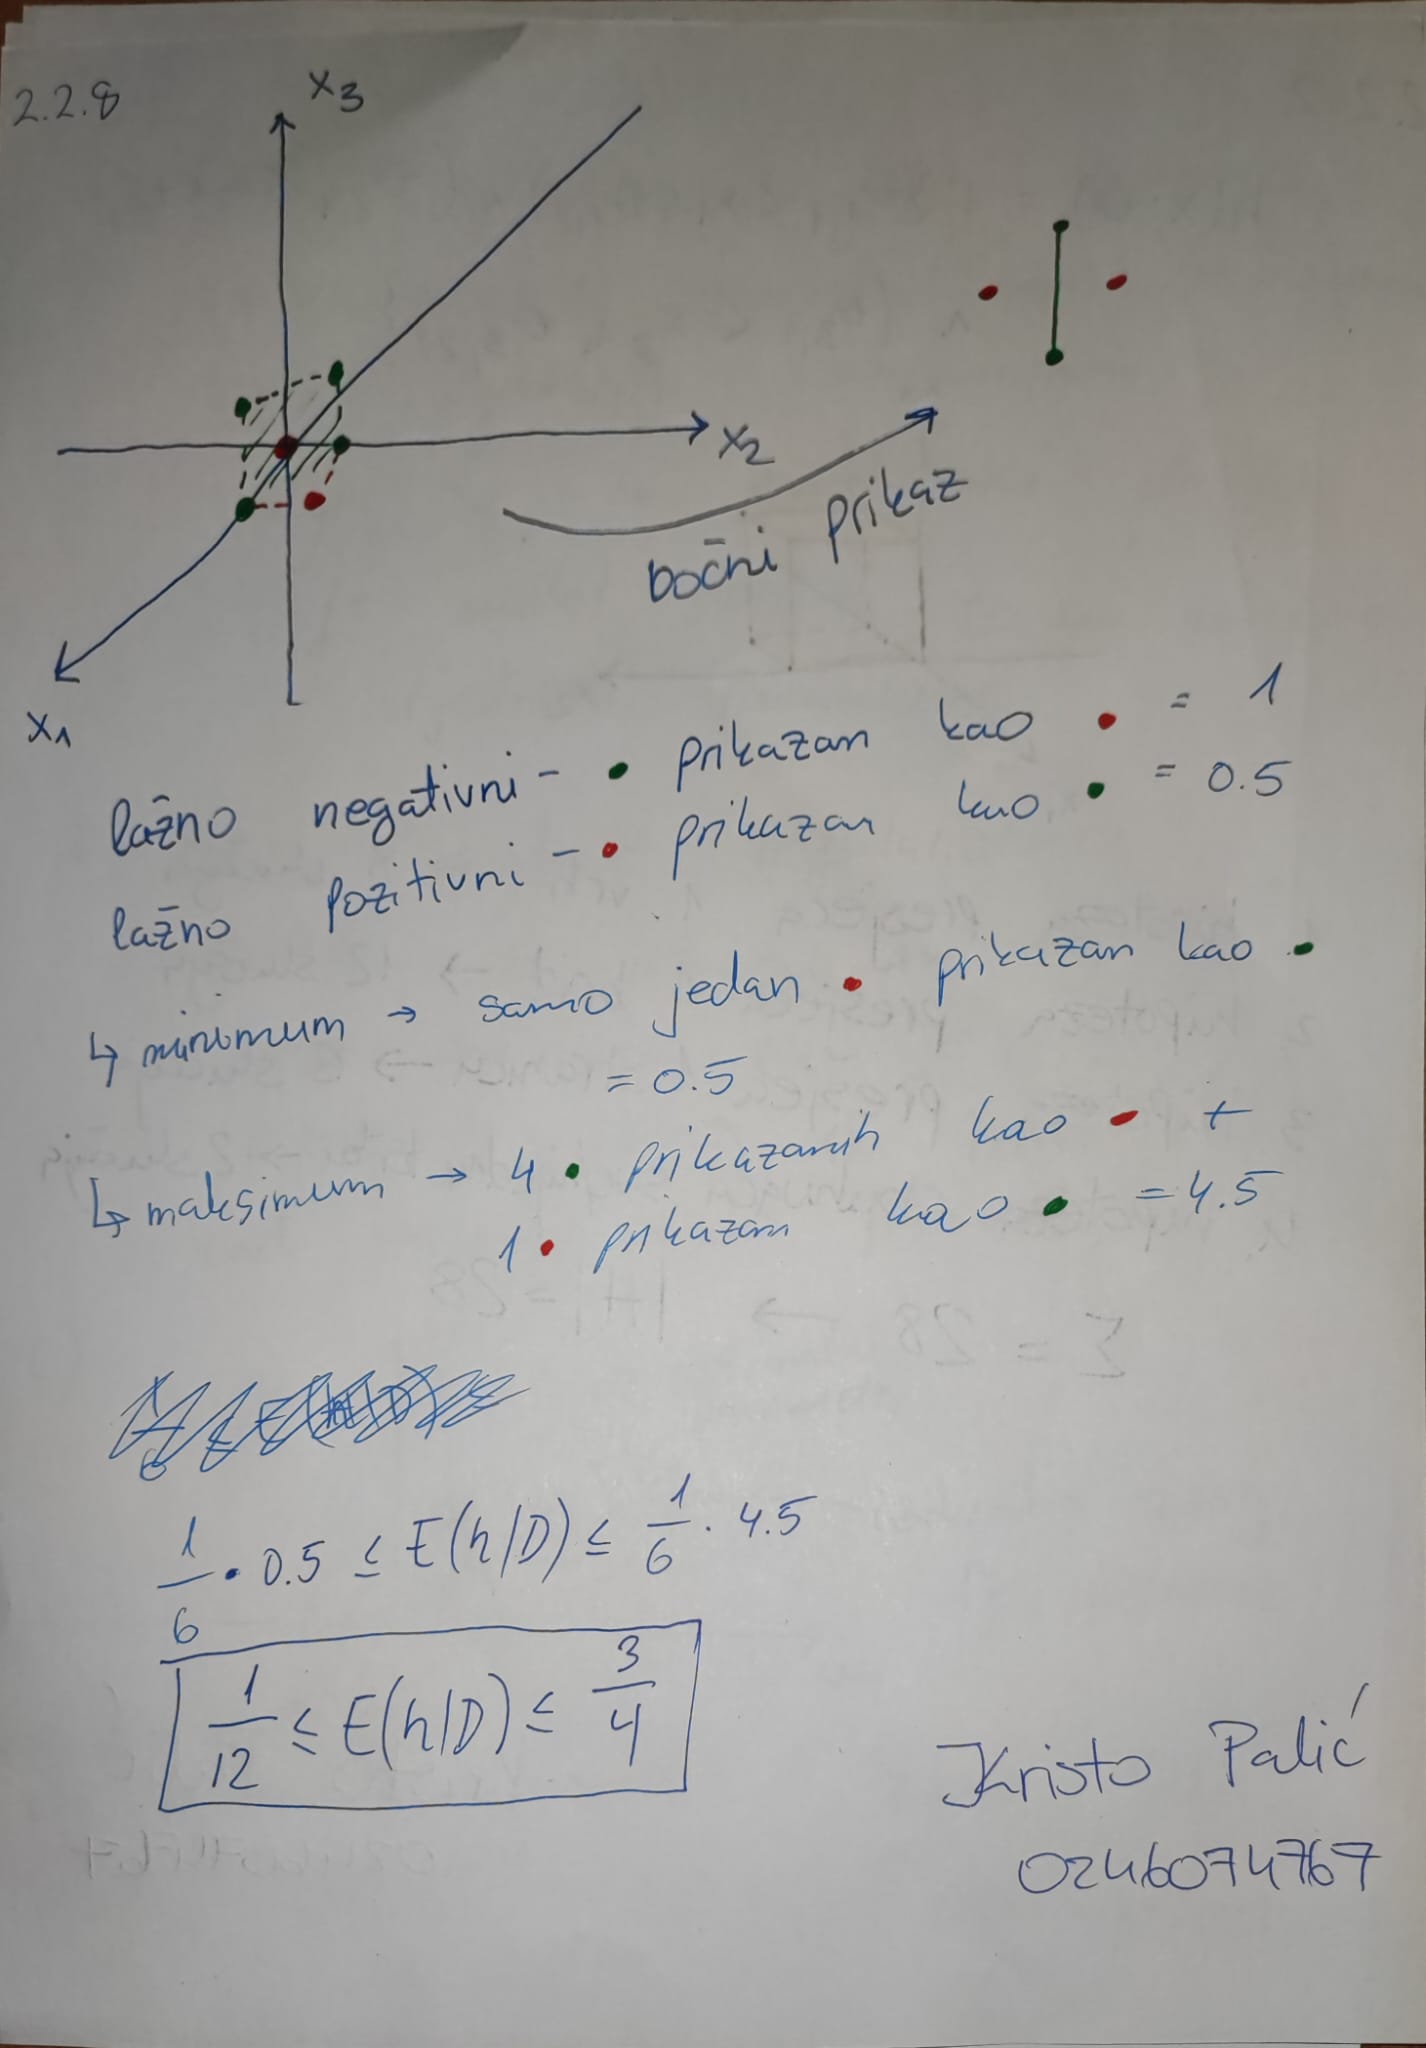 2.2.8
x3
x2
x1
bočni prikaz
lažno negativni - • prikazan kao • = 1
lažno pozitivni - • prikazan kao • = 0.5
↳ minimum → samo jedan • prikazan kao •
= 0.5
↳ maksimum → 4 • prikazanih kao • +
1 • prikazan kao • = 4.5
1/6 • 0.5 ≤ E(h/D) ≤ 1/6 · 4.5
1/12 ≤ E(h/D) ≤ 3/4
Kristo Palić
0246074767
Σ = 28 → |H| = 28